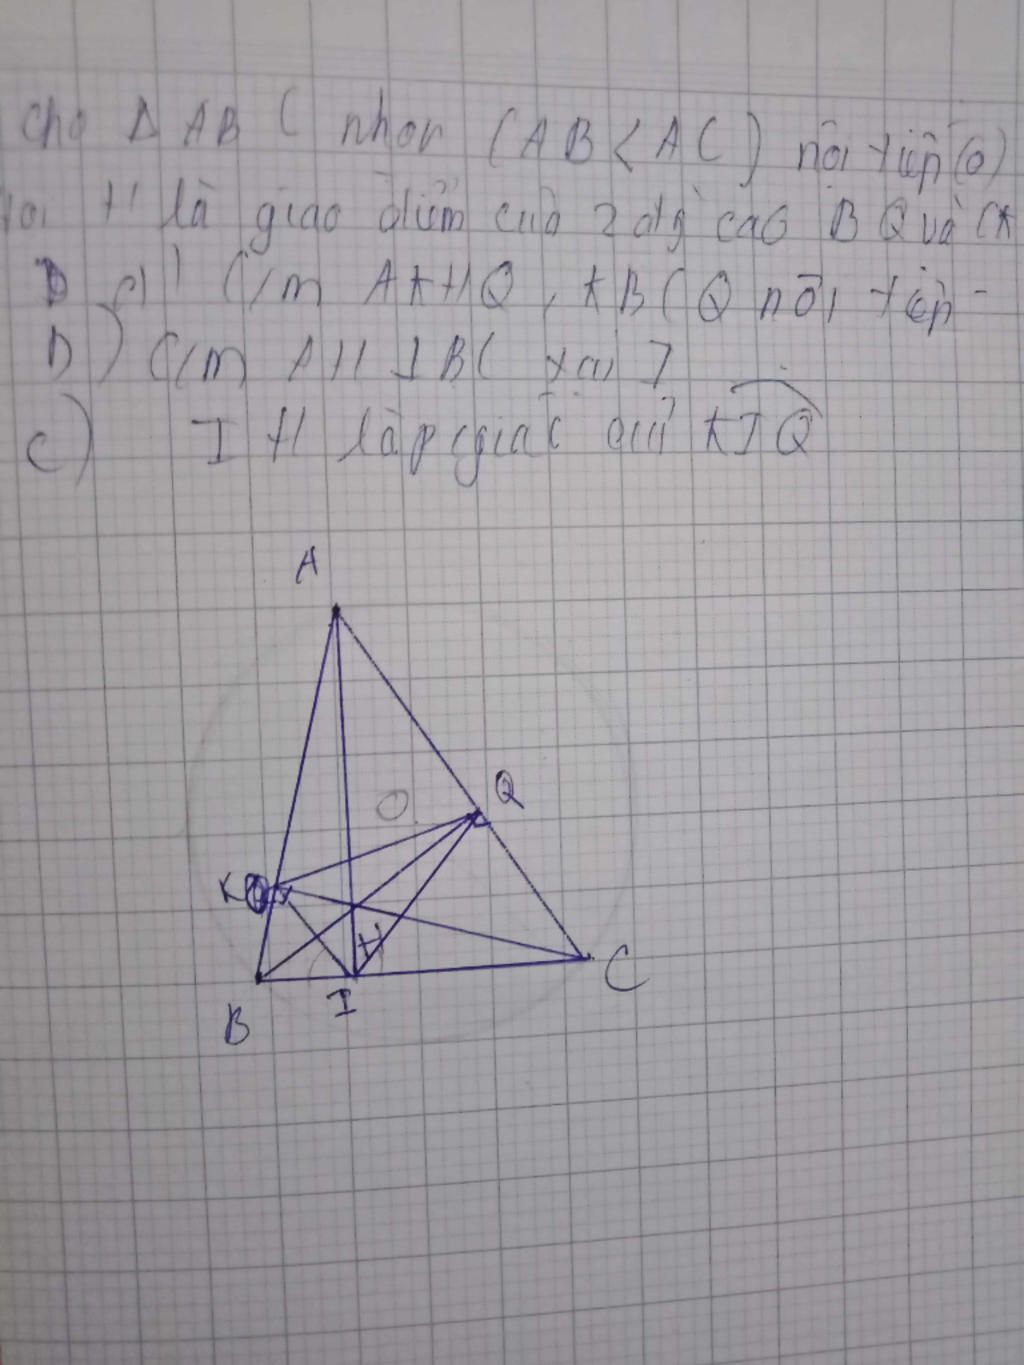 Cho Δ ABC nhọn (AB < AC) nội tiếp (O)
Gọi H là giao điểm của 2 đg cao BQ và CK
a) C/m AKHQ, KBCQ nội tiếp
b) C/m AH ⊥ BC tại I
c) IH là p/giác của KIQ
A
O
Q
K
H
C
I
B